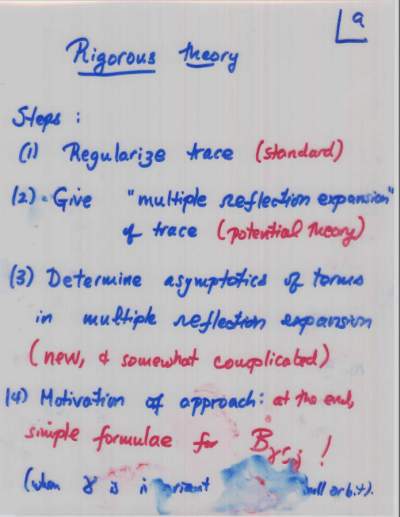 9
Rigorous theory
Steps :
(1) Regularize trace (standard)
(2) Give "multiple reflection expansion"
of trace (potential theory)
(3) Determine asymptotics of terms
in multiple reflection expansion
(new, & somewhat complicated)
(4) Motivation of approach: at the end,
simple formulae for B !
(when γ is orbit).